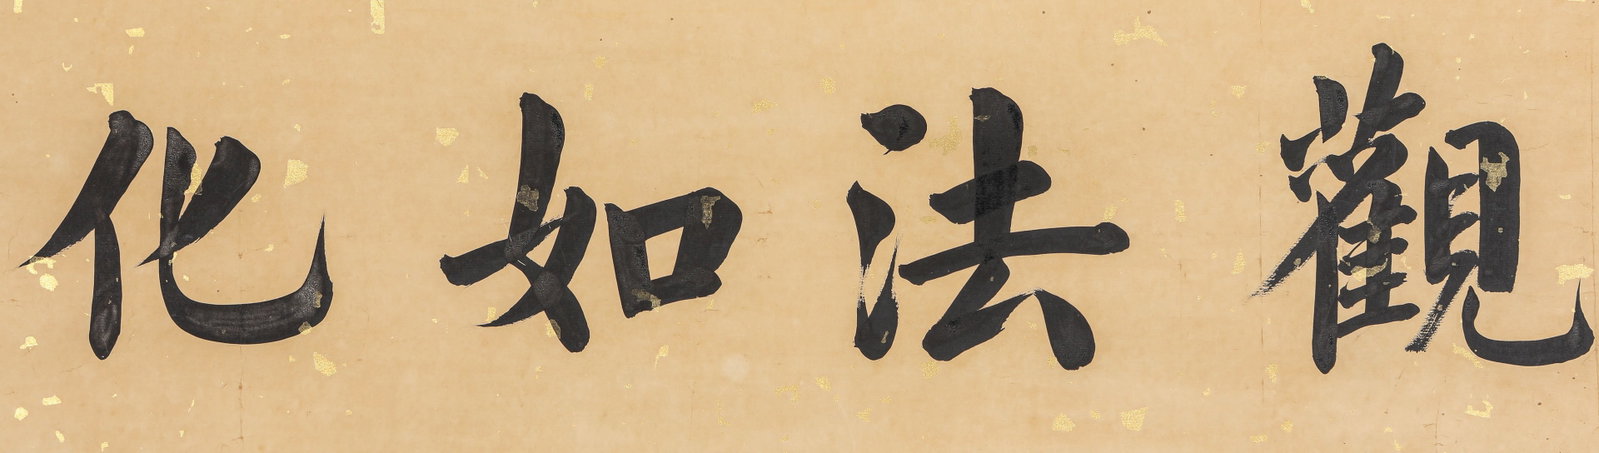 觀法如化